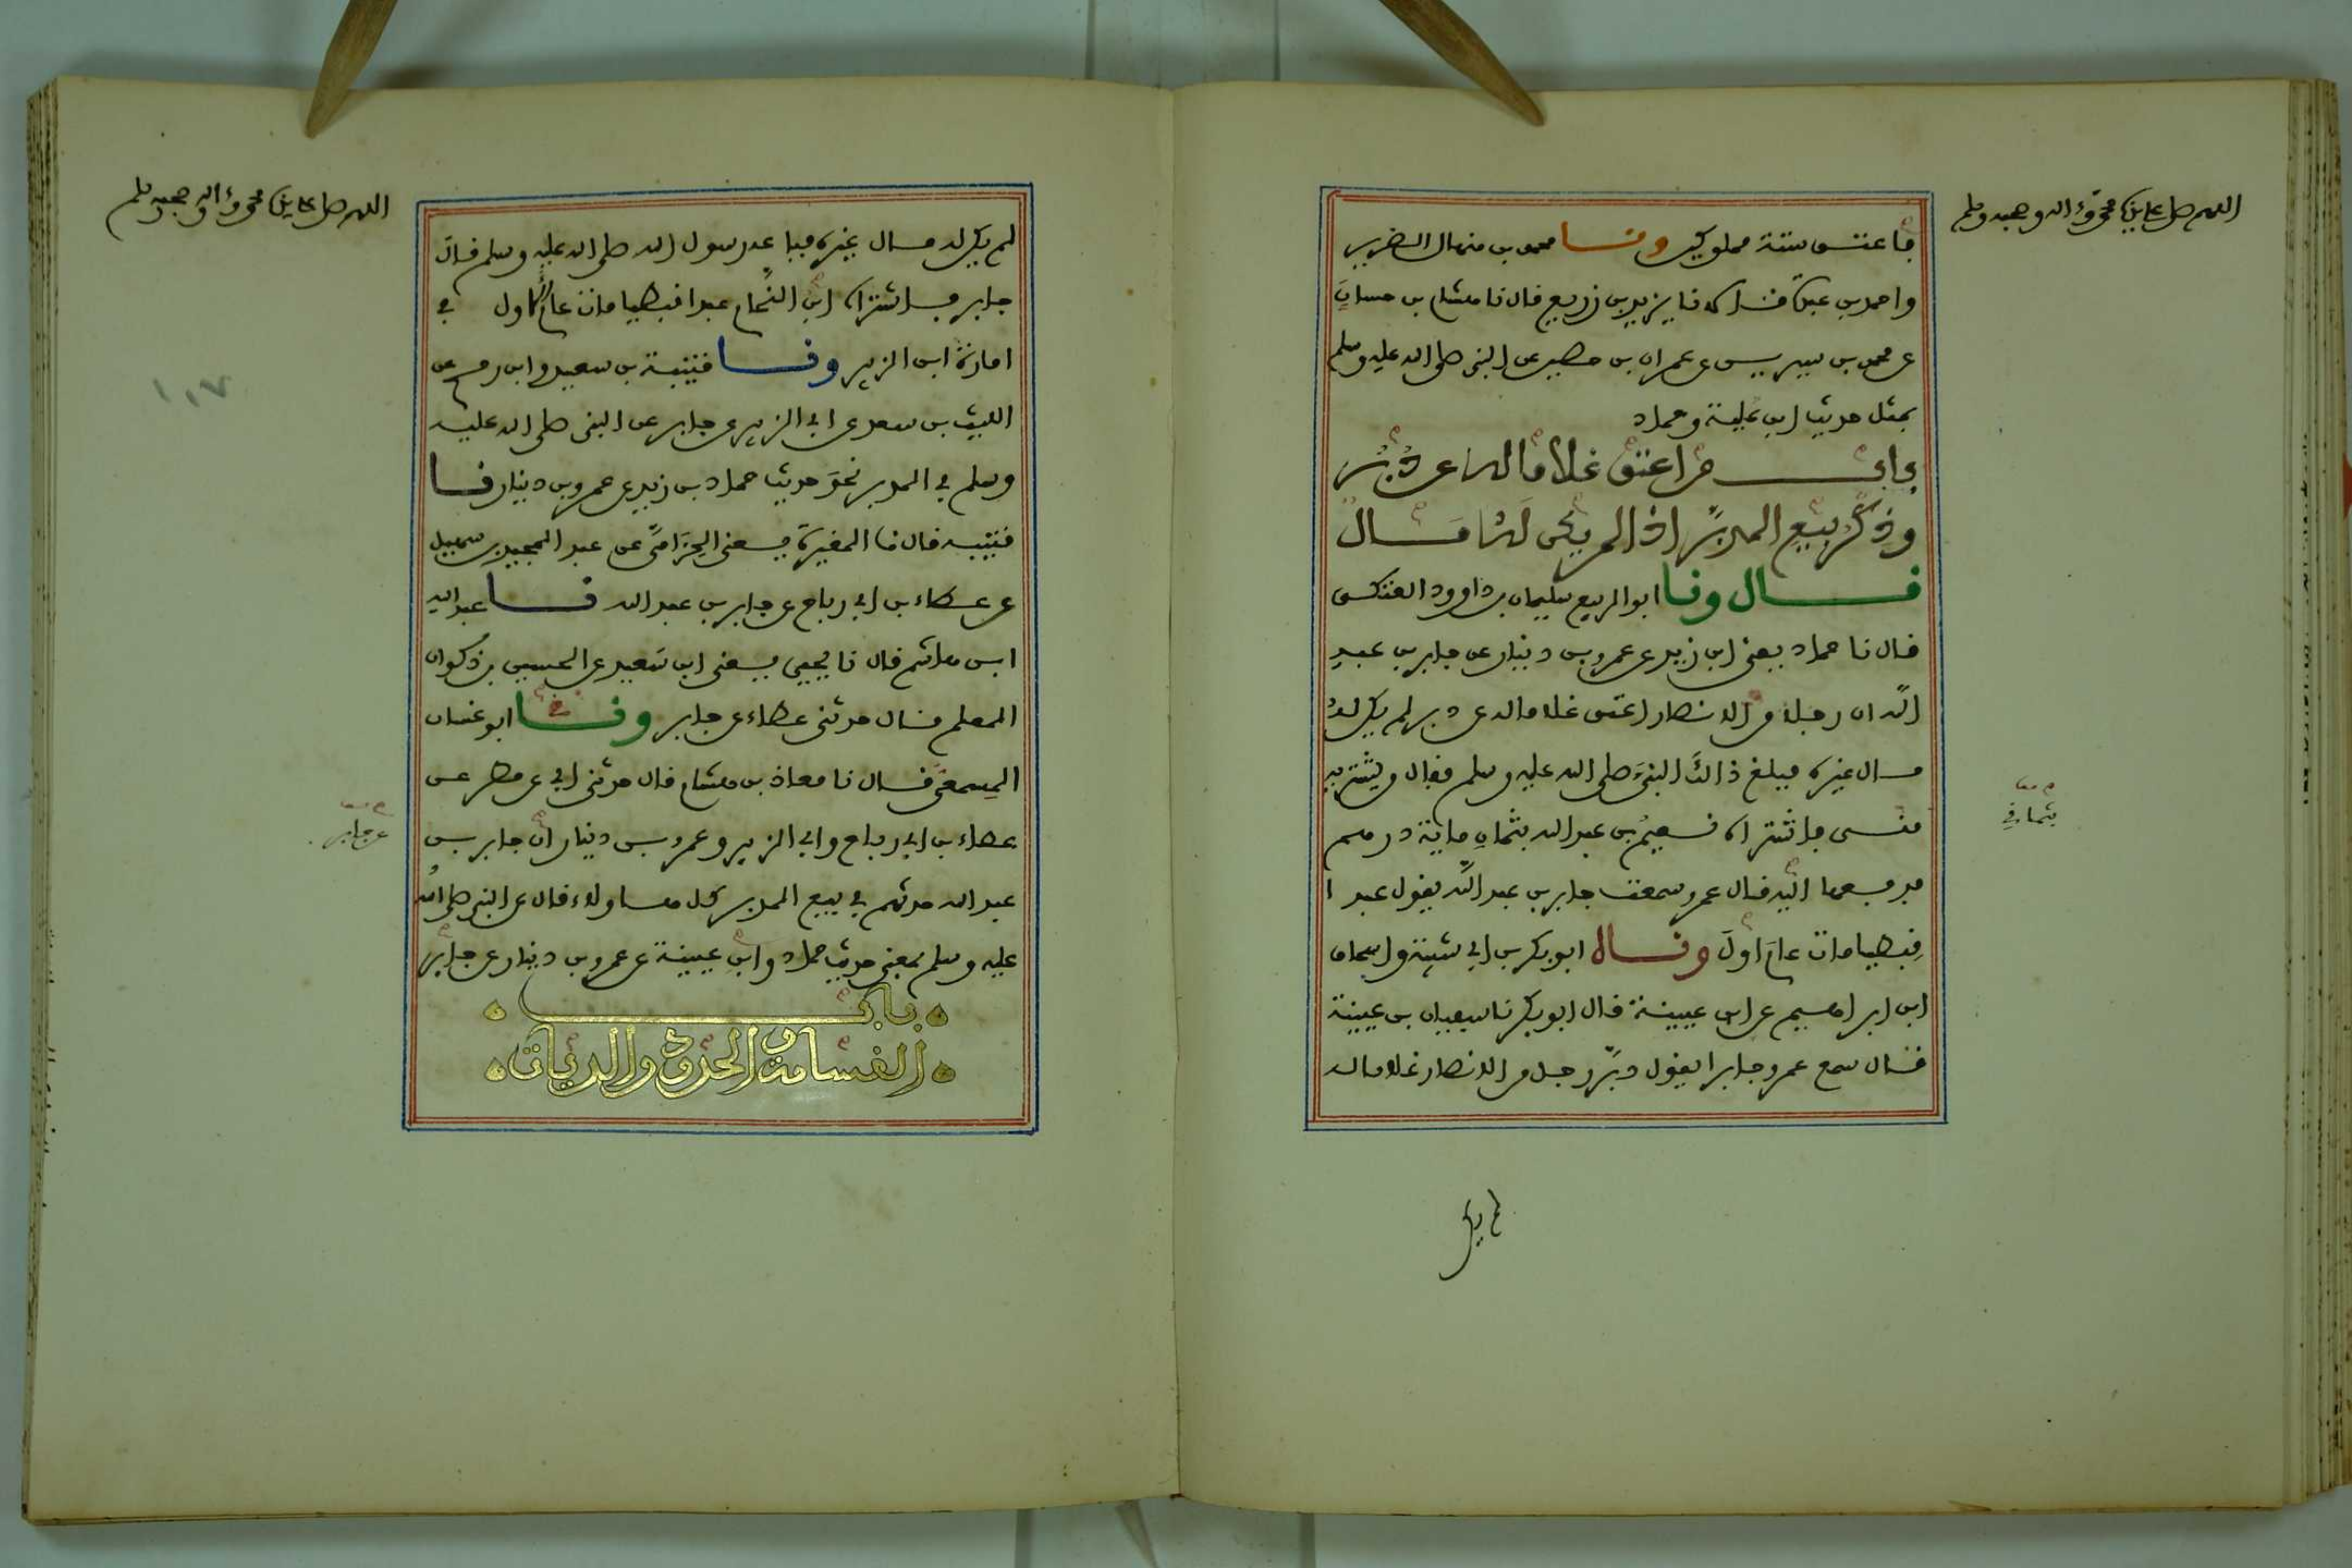 اللهم صل على نبينا محمد وءاله وصحبه وسلم
فاعتق ستة مملوكين ونا محمد بن منهال الضرير
واحمد بن عبدة قالا نا يزيد بن زريع قال نا هشام بن حسان
عن محمد بن سيرين عن عمران بن حصين عن النبي صلى الله عليه وسلم
بمثل حديث ابن علية وحماد
باب من اعتق غلاما له عن دبر
وذكر بيع المدبر اذا لم يكن له مال
قال ونا ابو الربيع سليمان بن داوود العتكي
قال نا حماد يعني ابن زيد عن عمرو بن دينار عن جابر بن عبد
الله ان رجلا من الانصار اعتق غلاما له عن دبر لم يكن له
مال غيره فبلغ ذالك النبي صلى الله عليه وسلم فقال من يشتريه
مني فاشتراه نعيم بن عبد الله بثمان مائة درهم
فدفعها اليه قال عمرو سمعت جابر بن عبد الله يقول عبدا
قبطيا مات عام اول وناه ابو بكر بن ابي شيبة واسحاق
ابن ابراهيم عن ابن عيينة قال ابو بكر نا سفيان بن عيينة
قال سمع عمرو جابرا يقول دبر رجل من الانصار غلاما له
بثماني
لم يكن
اللهم صل على نبينا محمد وءاله وصحبه وسلم
لم يكن له مال غيره فباعه رسول الله صلى الله عليه وسلم قال
جابر فاشتراه ابن النحام عبدا قبطيا مات عام الاول في
امارة ابن الزبير ونا قتيبة بن سعيد وابن رمح عن
الليث بن سعد عن ابي الزبير عن جابر عن النبي صلى الله عليه
وسلم في المدبر نحو حديث حماد بن زيد عن عمرو بن دينار نا
قتيبة قال نا المغيرة يعني الحزامي عن عبد المجيد بن سهيل
عن عطاء بن ابي رباح عن جابر بن عبد الله نا عبد الله
ابن هاشم قال نا يحيى يعني ابن سعيد عن الحسين بن ذكوان
المعلم قال حدثني عطاء عن جابر ونا ابو غسان
المسمعي قال نا معاذ بن هشام قال حدثني ابي عن مطر عن
عطاء بن ابي رباح وابي الزبير وعمرو بن دينار ان جابر بن
عبد الله حدثهم في بيع المدبر كل هاولاء قال عن النبي صلى الله
عليه وسلم بمعنى حديث حماد وابن عيينة عن عمرو بن دينار عن جابر
باب
القسامة والحدود والديات
عن جابر
١٠٧